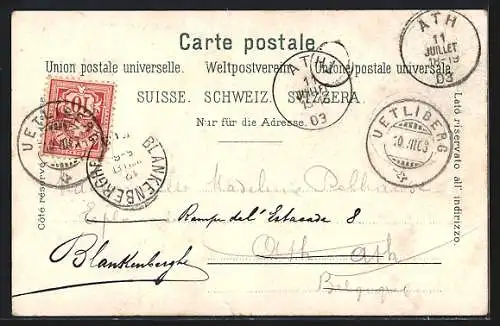 Carte postale.
Union postale universelle. Weltpostverein. Unione postale universale.
SUISSE. SCHWEIZ. SVIZZERA.
Nur für die Adresse.
Côté réservé
Lato riservato all' indirizzo.
10
UETLIBERG
BLANKENBERGHE
ATH
03
ATH
11
JUILLET
18-19
03
UETLIBERG
10.VII.03
Madeleine
Rampe de l'Estacade 8
Ath Ath
Blankenberghe
Belgique